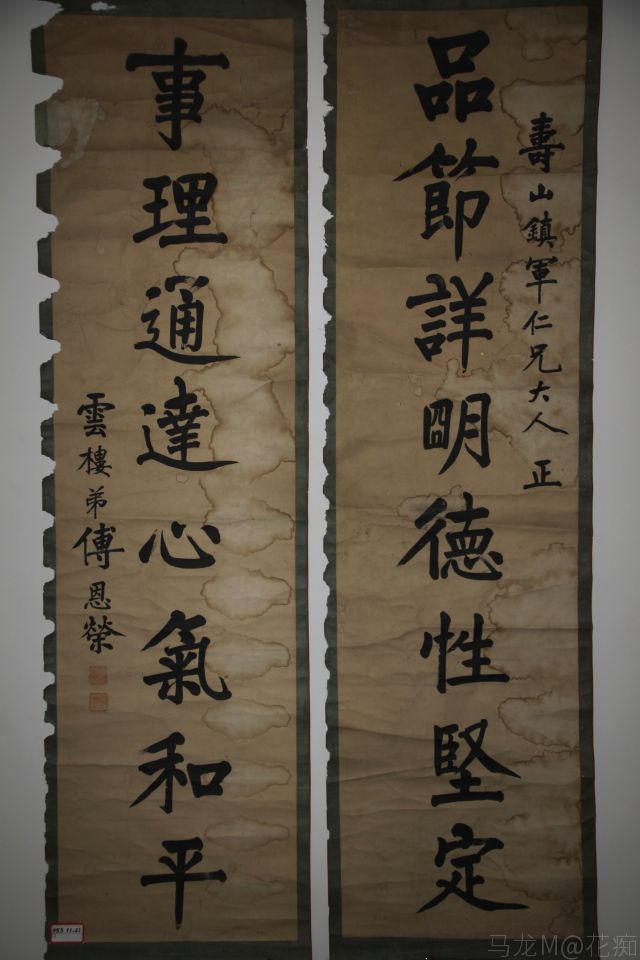 壽山鎮軍仁兄大人正
品節詳明德性堅定
事理通達心氣和平
雲樓弟傅恩榮
馬龙M@花痴